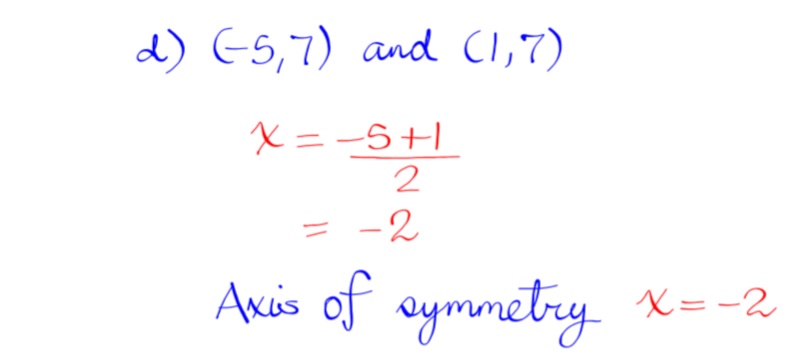 d) (-5,7) and (1,7)
x = -5+1
2
= -2
Axis of symmetry x = -2